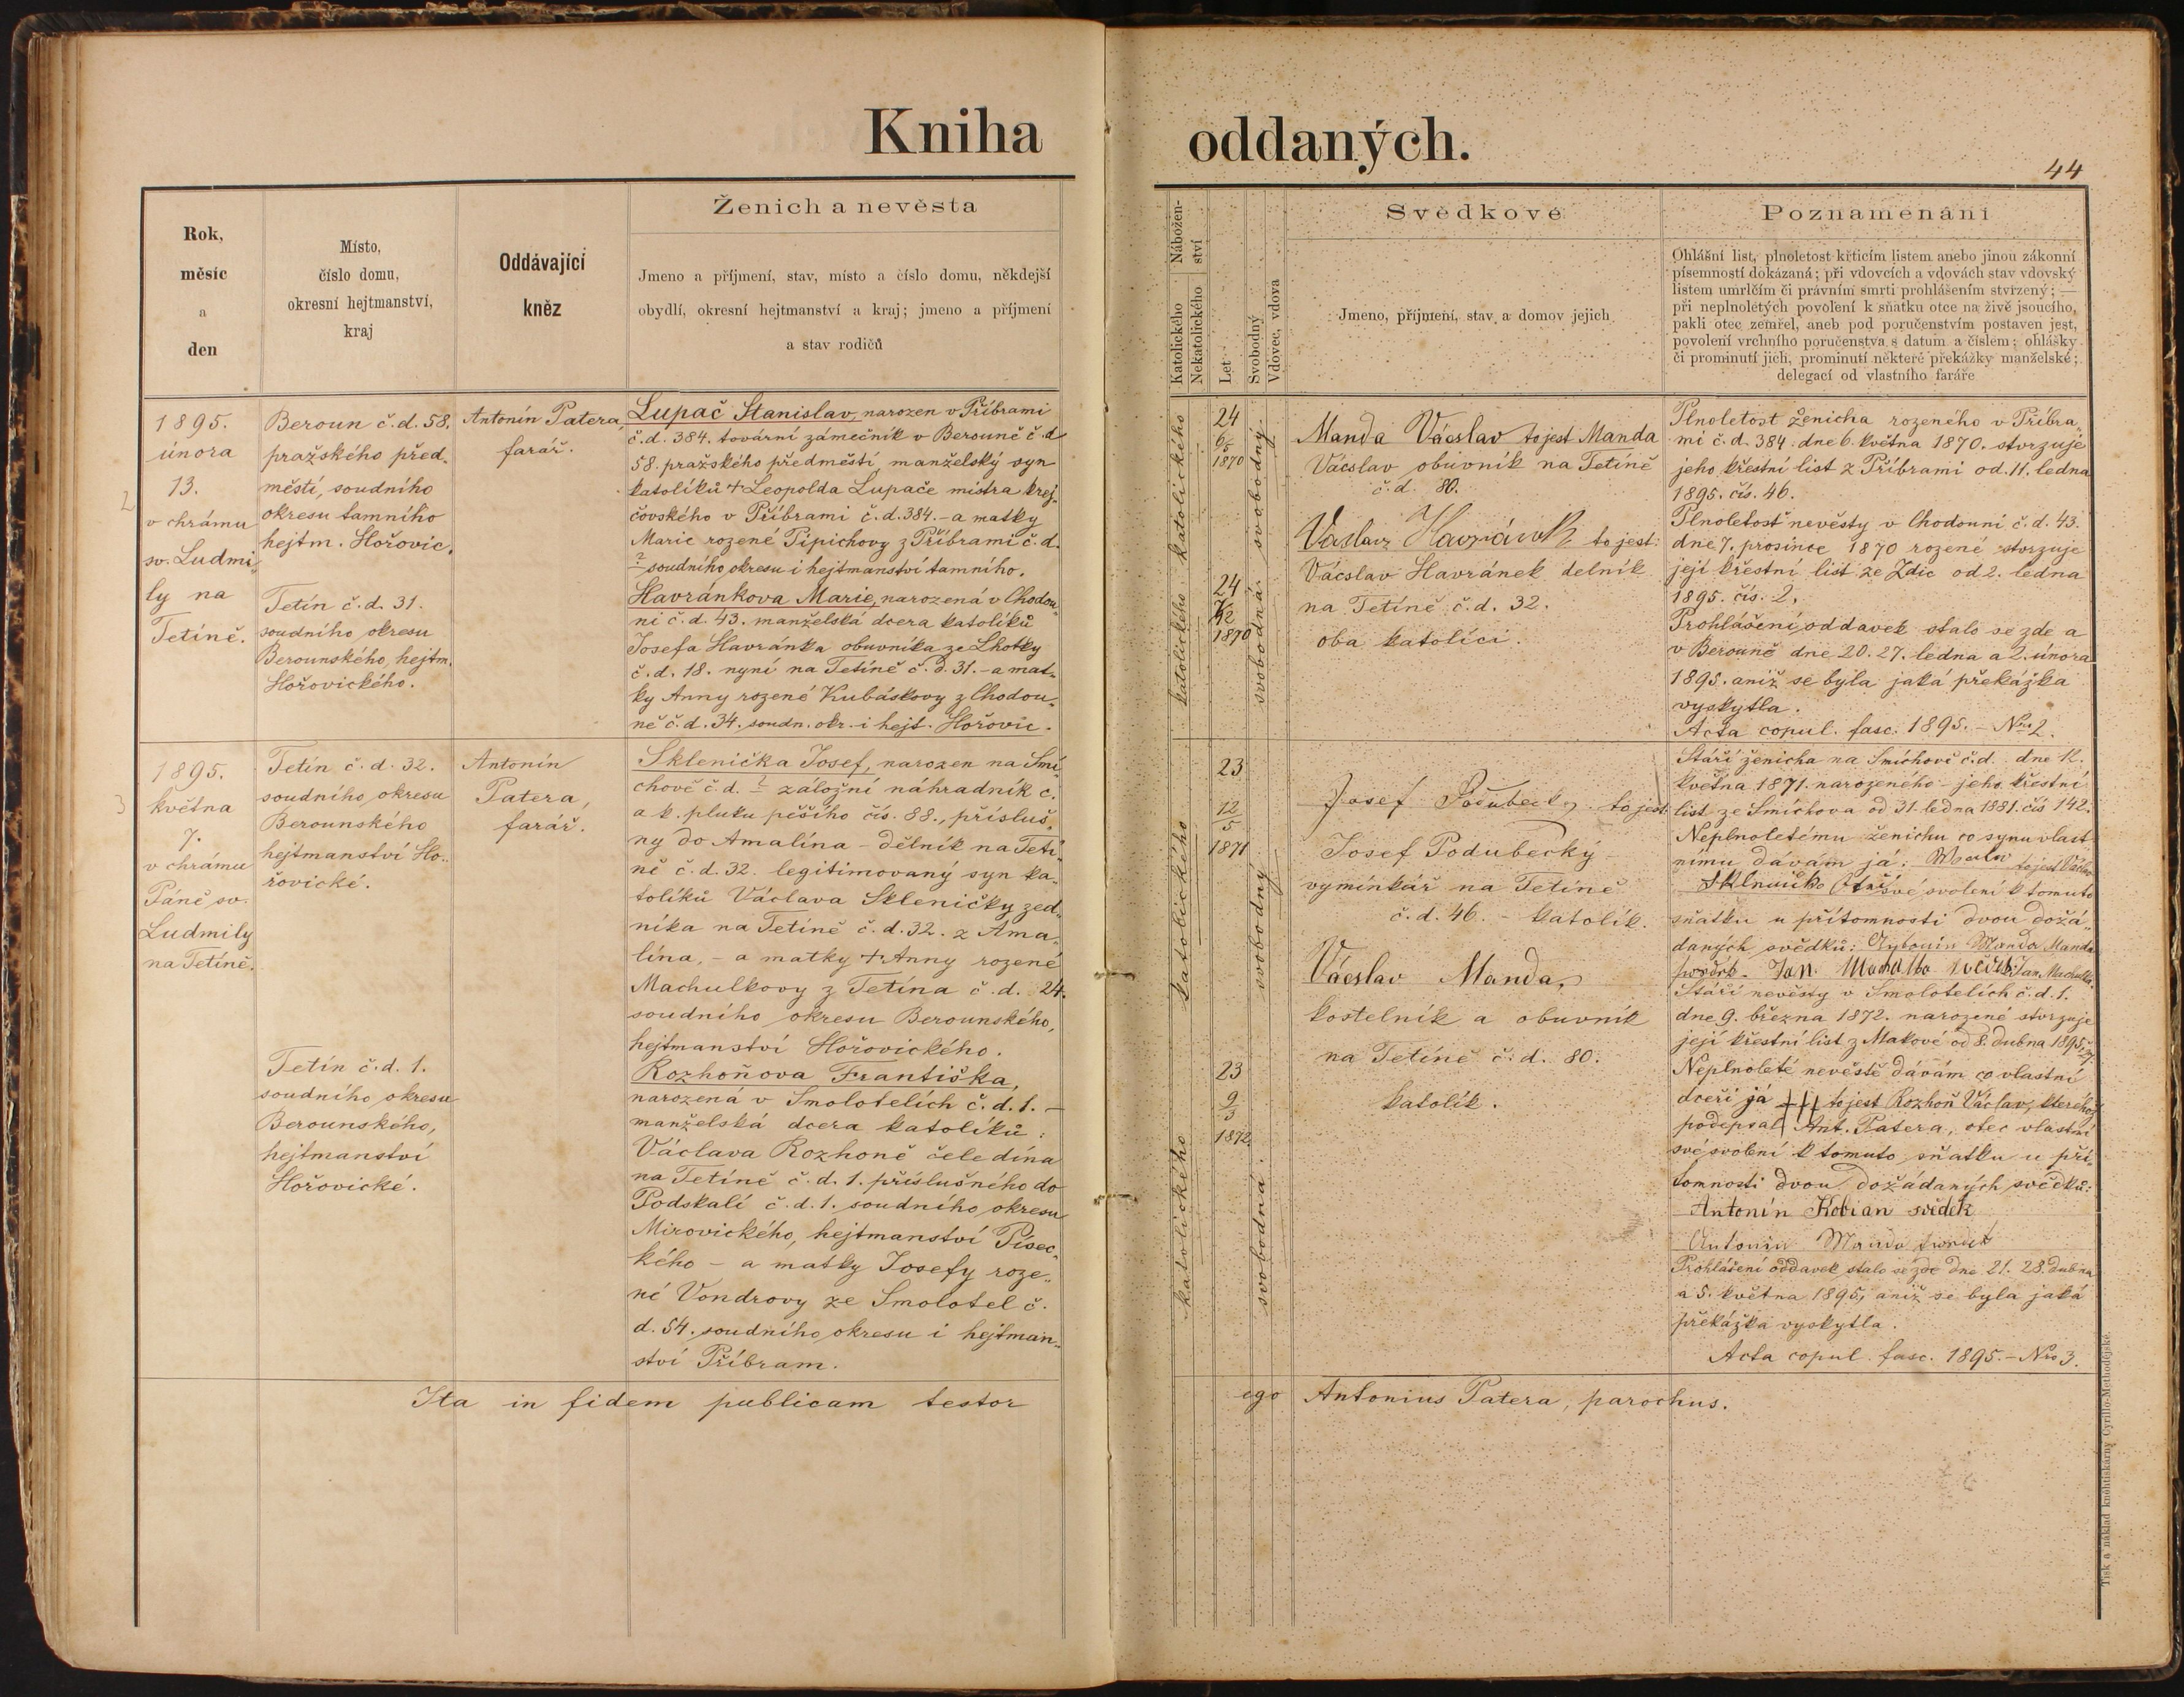 Kniha oddaných.
44
Rok,
měsíc
a
den
Místo,
číslo domu,
okresní hejtmanství,
kraj
Oddávající
kněz
Ženich a nevěsta
Jmeno a příjmení, stav, místo a číslo domu, někdejší
obydlí, okresní hejtmanství a kraj; jmeno a příjmení
a stav rodičů
Nábožen-
ství
Katolického
Nekatolického
Let
Svobodný
Vdovec, vdova
Svědkové
Jmeno, příjmení, stav a domov jejich
Poznamenání
Ohlášní list, plnoletost křticím listem anebo jinou zákonní
písemností dokázaná; při vdovcích a vdovách stav vdovský
listem umrlčím či právním smrti prohlášením stvrzený; —
při neplnoletých povolení k sňatku otce na živě jsoucího,
pakli otec zemřel, aneb pod poručenstvím postaven jest,
povolení vrchního poručenstva s datum a číslem; ohlášky
či prominutí jich, prominutí některé překážky manželské;
delegací od vlastního faráře
2
1895.
února
13.
v chrámu
sv. Ludmi„
ly na
Tetíně.
Beroun č.d. 58.
pražského před„
městí, soudního
okresu tamního
hejtm. Hořovic.
Tetín č.d. 31.
soudního okresu
Berounského, hejtm.
Hořovického.
Antonín Patera,
farář.
Lupač Stanislav, narozen v Příbrami
č.d. 384. tovární zámečník v Berouně č.d.
58. pražského předměstí manželský syn
katolíků + Leopolda Lupače mistra krej„
čovského v Příbrami č.d. 384. - a matky
Marie rozené Pipichovy z Příbrami č.d.
? soudního okresu i hejtmanství tamního.
Havránkova Marie, narozená v Chodou„
ni č.d. 43. manželská dcera katolíků
Josefa Havránka obuvníka ze Lhotky
č.d. 18. nyní na Tetíně č.d. 31. - a mat„
ky Anny rozené Kubáskovy z Chodou„
ně č.d. 34. soudn. okr. i hejt. Hořovic.
katolického
24
6/5
1870
svobodný
katolického
24
7/12
1870
svobodná
Manda Václav to jest Manda
Václav obuvník na Tetíně
č.d. 80.
to jest:
Václav Havránek delník
na Tetíně č.d. 32.
oba katolíci.
Plnoletost ženicha rozeného v Příbra„
mi č.d. 384. dne 6. května 1870. stvrzuje
jeho křestní list z Příbrami od. 11. ledna
1895. čís. 46.
Plnoletost nevěsty v Chodouni č.d. 43.
dne 7. prosince 1870 rozené stvrzuje
její křestní list ze Zdic od 2. ledna
1895. čís. 2.
Prohlášení oddavek stalo se zde a
v Berouně dne 20. 27. ledna a 2. února
1895. aniž se byla jaká překážka
vyskytla.
Acta copul. fasc. 1895. - Nro 2.
3
1895.
května
7.
v chrámu
Páně sv.
Ludmily
na Tetíně.
Tetín č.d. 32.
soudního okresu
Berounského
hejtmanství Ho„
řovické.
Tetín č.d. 1.
soudního okresu
Berounského,
hejtmanství
Hořovické.
Antonín
Patera,
farář.
Sklenička Josef, narozen na Smí„
chově č.d. ? záložní náhradník c.
a k. pluku pěšího čís. 88., přísluš„
ný do Amalína - dělník na Tetí„
ně č.d. 32. legitimovaný syn ka„
tolíků Václava Skleničky zed„
níka na Tetíně č.d. 32. z Ama„
lína, - a matky + Anny rozené
Machulkovy z Tetína č.d. 24.
soudního okresu Berounského,
hejtmanství Hořovického.
Rozhoňova Františka,
narozená v Smolotelích č.d. 1. -
manželská dcera katolíků:
Václava Rozhoně čeledína
na Tetíně č.d. 1. příslušného do
Podskalí č.d. 1. soudního okresu
Mirovického, hejtmanství Písec„
kého - a matky Josefy roze„
né Vondrovy ze Smolotel č.
d. 54. soudního okresu i hejtman„
ství Příbram.
katolického
23
12/5
1871
svobodný
katolického
23
9/3
1872.
svobodná
Josef Podubecky to jest:
Josef Podubecký -
vymínkář na Tetíně
č.d. 46. - katolík.
Václav Manda,
kostelník a obuvník
na Tetíně č.d. 80.
katolík.
Stáří ženicha na Smíchově č.d. dne 12.
května 1871. narozeného - jeho křestní
list ze Smíchova od 31. ledna 1881. čís 142.
Neplnoletému ženichu co synu vlast
nímu dávám já: to jest Václav
své svolení k tomuto
sňatku u přítomnosti dvou dožá„
daných svědků: Antonín Manda Manda
Jan Jan Machulka.
Stáří nevěsty v Smolotelích č.d. 1.
dne 9. března 1872. narozené stvrzuje
její křestní list z Makové od 8. dubna 1895.
Neplnoleté nevěstě dávám co vlastní
dceři já +++ to jest Rozhoň Václav, kterého
podepsal Ant. Patera, otec vlastní
své svolení k tomuto sňatku u pří„
tomnosti dvou dožádaných svědků:
Antonín Kobian svědek
Antonín Manda svědek
Prohlášení oddavek stalo se zde dne 21. 28. dubna
a 5. května 1895, aniž se byla jaká
překážka vyskytla.
Acta copul. fasc. 1895. - Nro 3.
Ita in fidem publicam testor ego Antonius Patera, parochus.
Tisk a náklad kněhtiskárny Cyrillo-Methodějské.